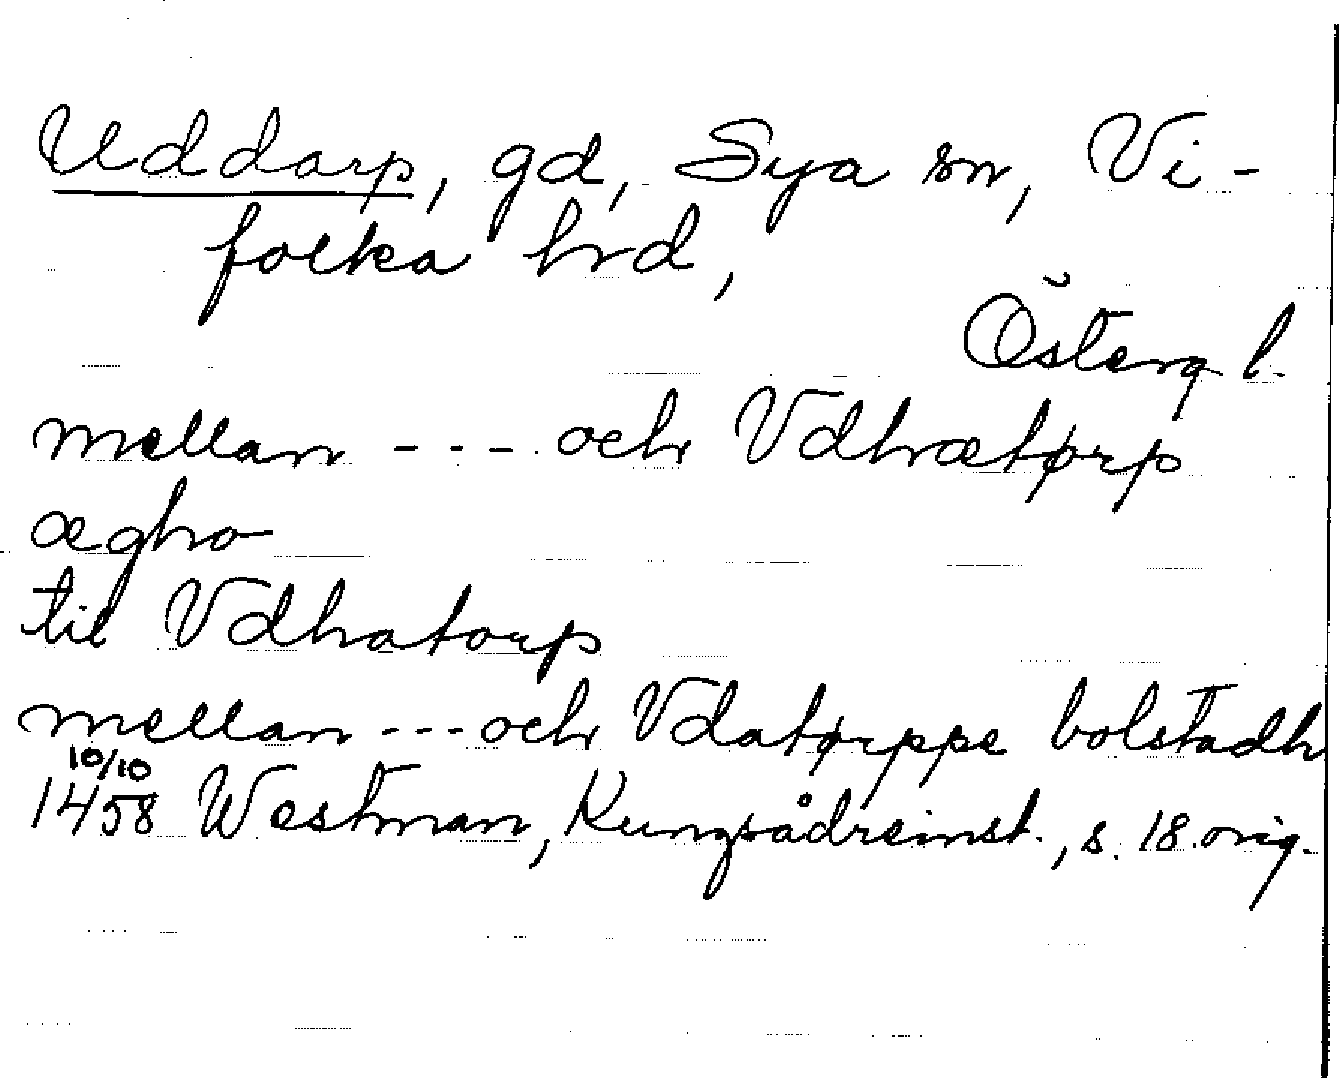 Uddarp, gd, Sya sn, Vi-
folka hrd,
Österg l.
mellan --- och Vdhætørp
ægho
til Vdhatorp
mellan --- och Vdatørppe bolstadh
10/10
1458 Westman, Kungsådreinst., s. 18. orig.